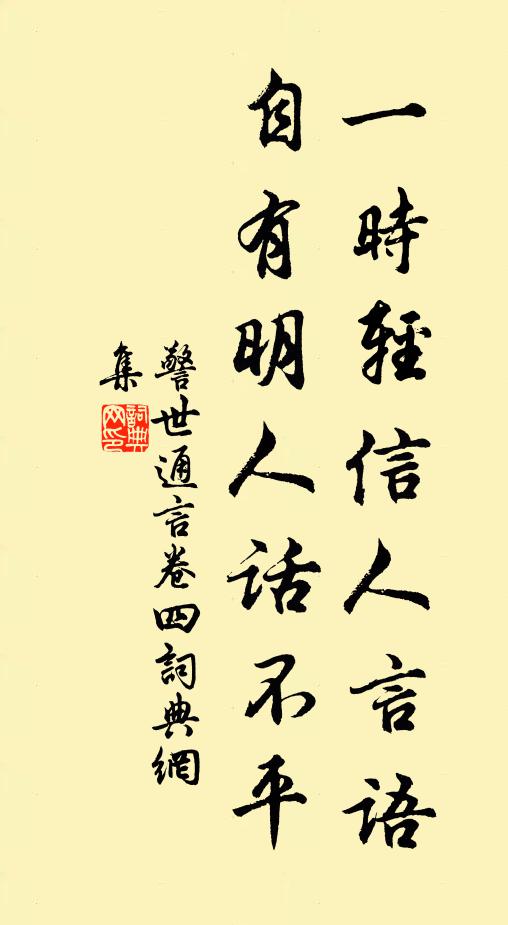 一時輕信人言語
自有明人話不平
警世通言卷四詞典網
集
詞典网印